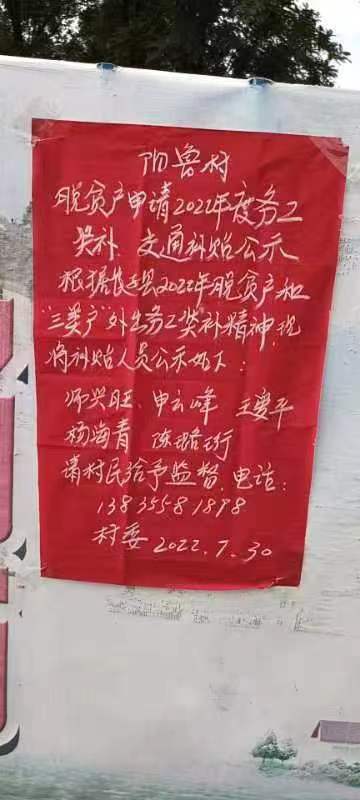 阳鲁村
脱贫户申请2022年度务工
奖补、交通补贴公示
根据长子县2022年脱贫户和
“三类户”外出务工奖补精神,现
将补贴人员公示如下:
师兴旺、申云峰 王爱平
杨海青 陈璐衍
请村民给予监督、电话:
13835581898
村委 2022.7.30